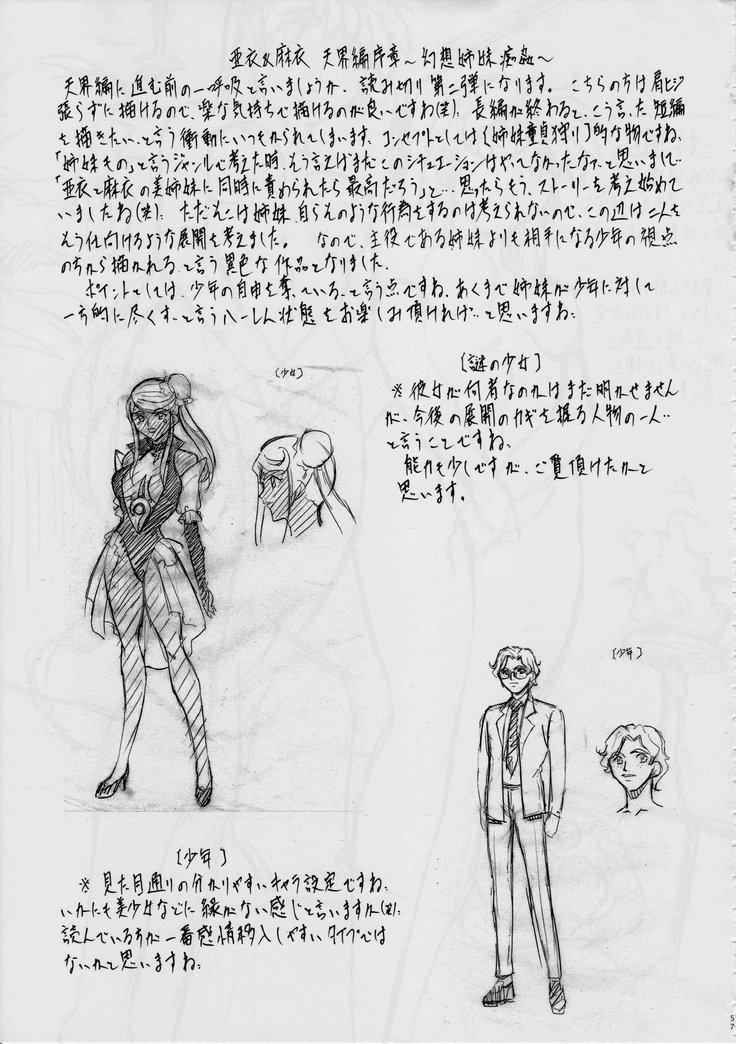 亜衣&麻衣 天界編序章～幻想姉妹痴姦～
天界編に進む前の一呼吸と言いましょうか、読み切り第二弾になります。こちらの方は肩ヒジ
張らずに描けるので、楽な気持ちで描けるのが良いですね(笑)。長編が終わると、こう言った短編
を描きたい、と言う衝動にいつもかられてしまいます。コンセプトとしては〔姉妹童貞狩り〕的な物ですね。
「姉妹もの」と言うジャンルで考えた時、そう言えばまだこのシチュエーションはやってなかったなァ、と思いまして…
「亜衣と麻衣の美姉妹に同時に責められたら最高だろう」と…思ったらもう、ストーリーを考え始めて
いましたね(笑)。ただそこは姉妹、自らそのような行為をするのは考えられないので、この辺は二人を
そう仕向けるような展開を考えました。 なので、主役である姉妹よりも相手になる少年の視点
の方から描かれる、と言う異色な作品となりました。
ポイントとしては、少年の自由を奪っている、と言う点ですね。あくまで姉妹が少年に対して
一方的に尽くす、と言うハーレム状態をお楽しみ頂ければ…と思いますね。
〔少女〕
〔謎の少女〕
※彼女が何者なのかはまだ明かせません
が、今後の展開のカギを握る人物の一人…
と言うことですね。
能力も少しですが、ご覧頂けたかと
思います。
〔少年〕
〔少年〕
※見た目通りの分かりやすいキャラ設定ですね。
いかにも美少女などに縁がない感じと言いますか(笑)。
読んでいる方が一番感情移入しやすいタイプでは
ないかと思いますね。
57